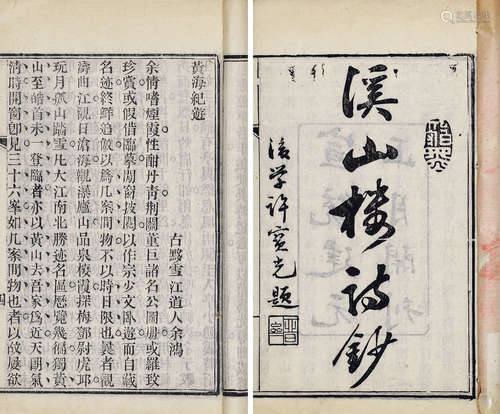 溪山樓詩鈔
後学許寶光題
黃海紀遊
古黟雪江道人余鴻
余情嗜煙霞性耐丹青荊關董巨諸名公圖冊或羅致
珍賞或假借臨摹閒窗披閱以作宗少文臥遊而自藏
名迹終鮮追倣以爲几案間物不以時日限也曩者觀
濤曲江觀日滄海觀瀑廬山品泉棲霞探梅鄧尉虎邱
玩月孤山踏雪凡大江南北勝迹名區歷覽幾徧獨黃
山至皓首未一登臨者亦以黃山去吾家爲近天朗氣
清時開窗卽見三十六峯如几案間物也者以故屢欲
四